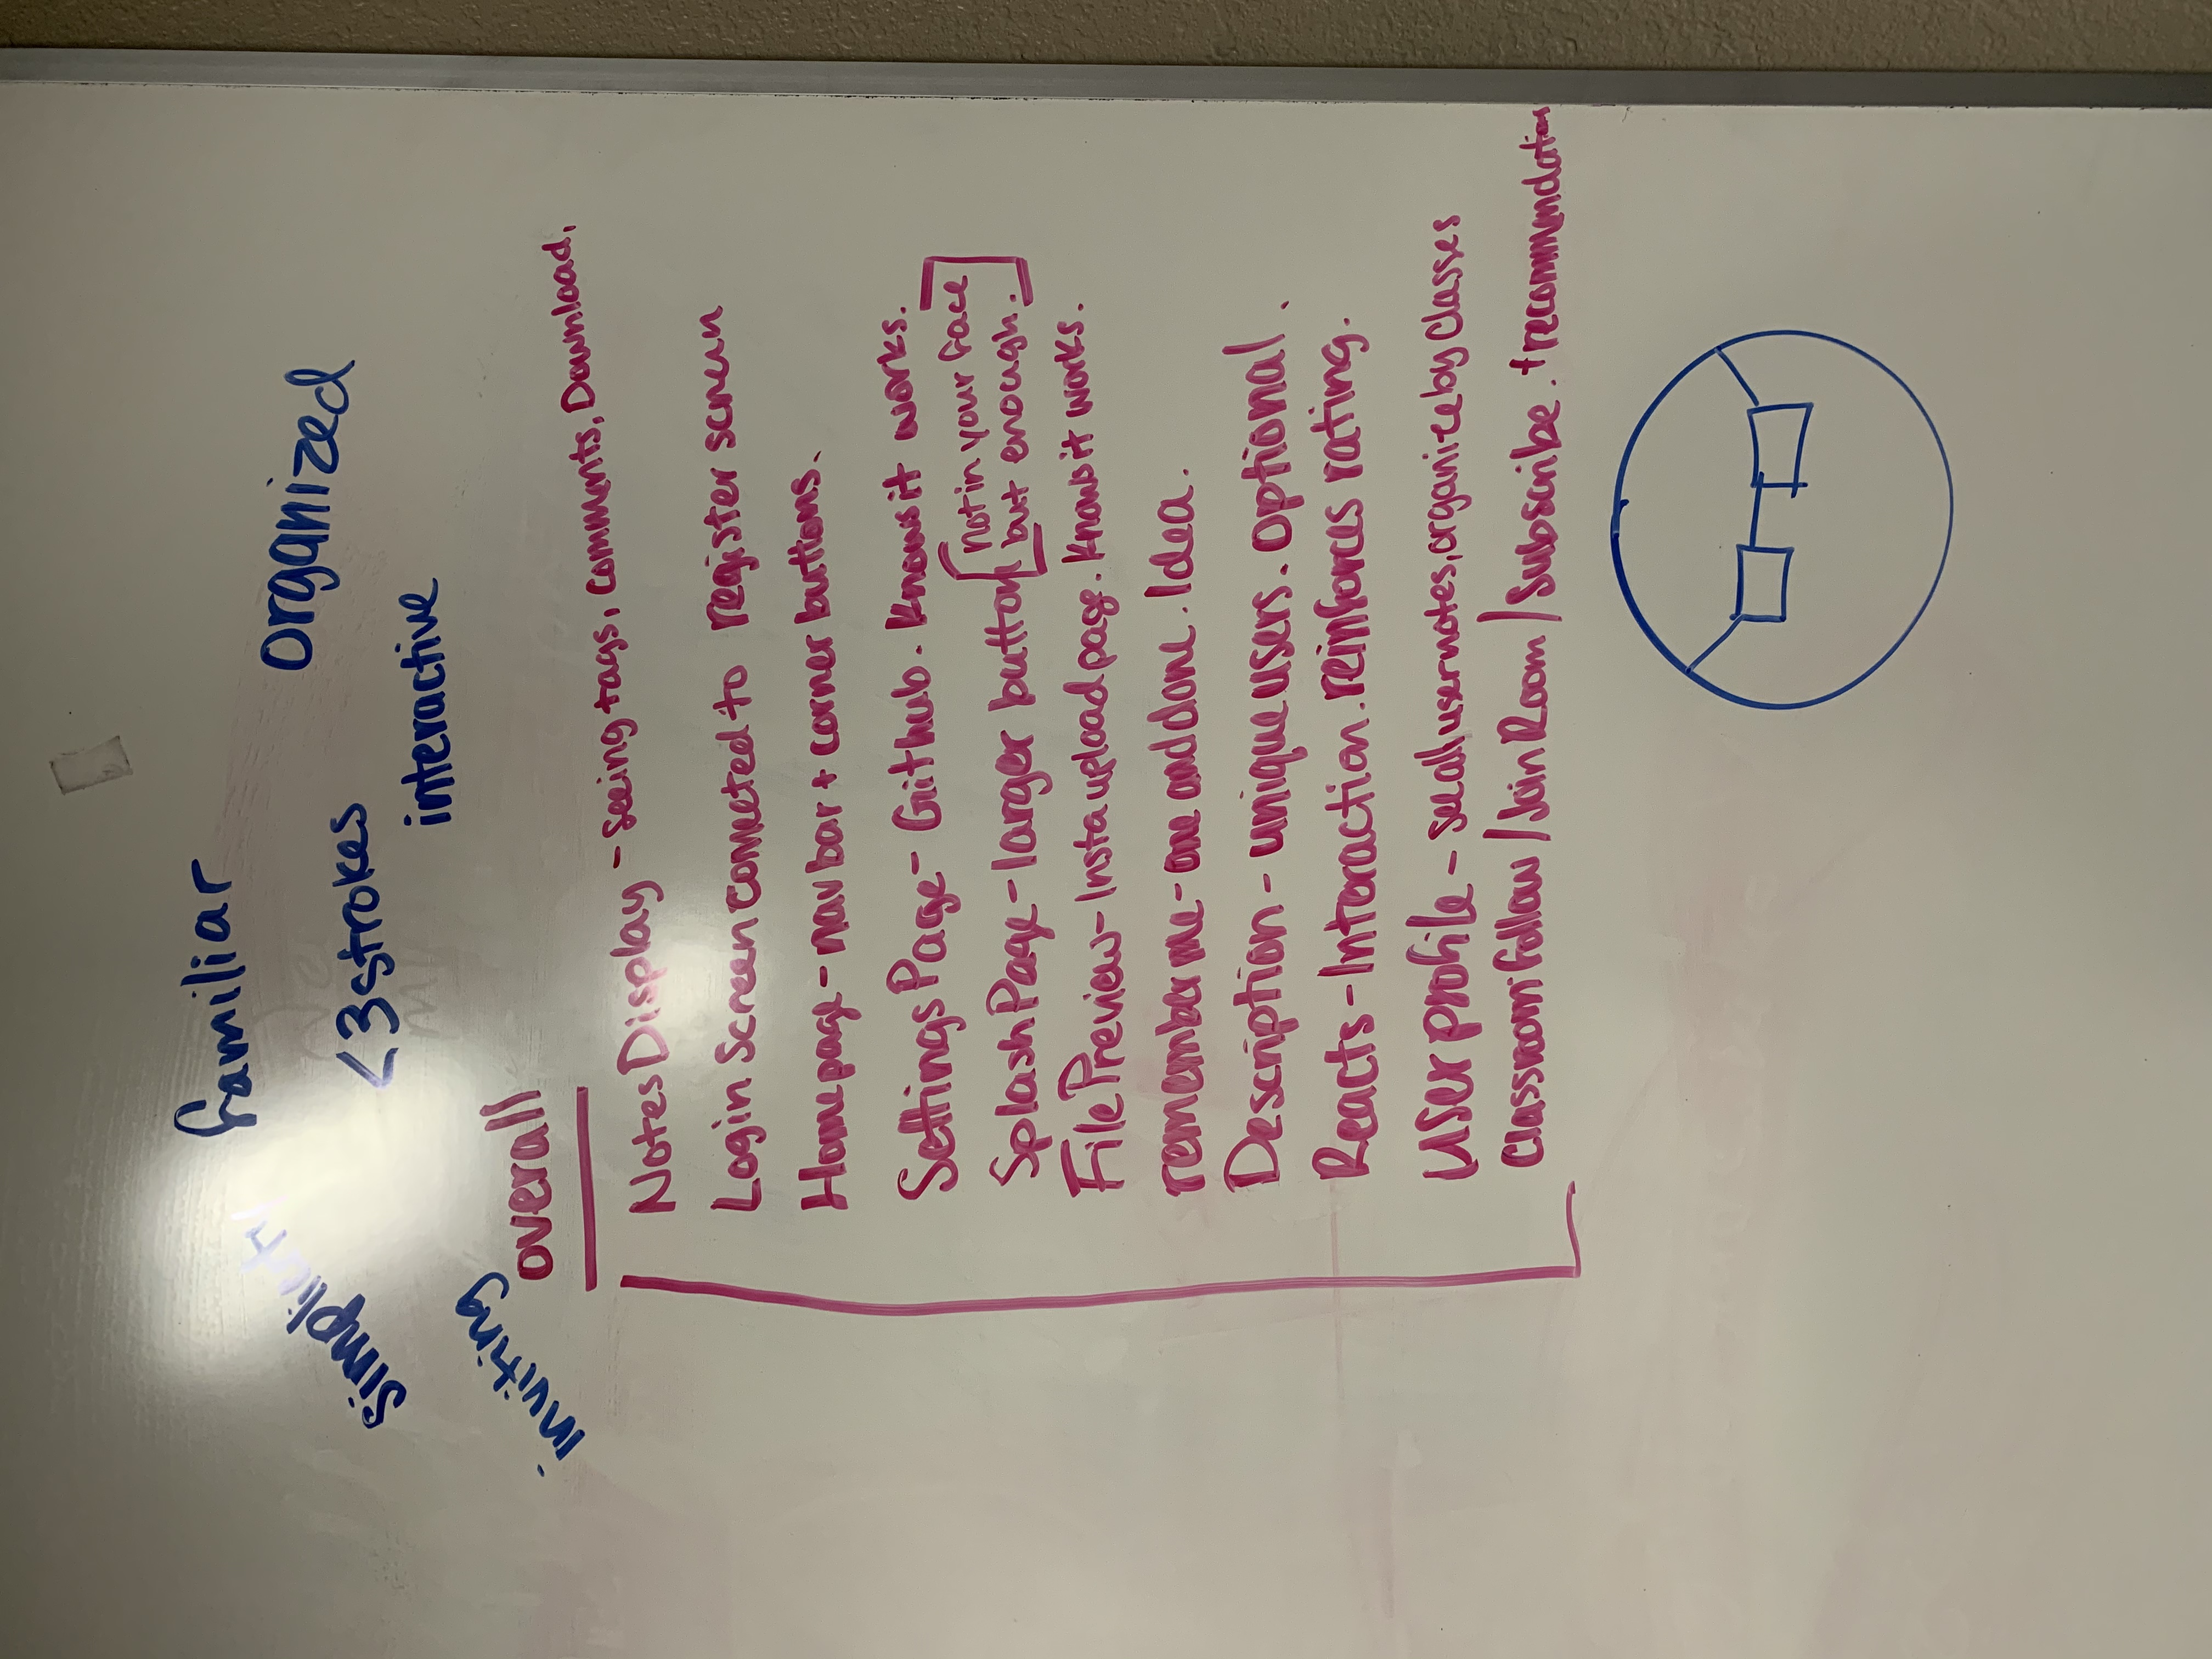 familiar
simplicity
organized
<3 strokes
interactive
inviting
overall
Notes Display - seeing tags, comments, Download,
Login Screen connected to register screen
Homepage - nav bar + corner buttons.
Settings Page - Github. Knows it works.
Splash Page - larger button [not in your face
but enough.]
File Preview - Insta upload page. Knows it works.
remember me - one and done. Idea.
Description - unique users. optional.
Reacts - Interaction. reinforces rating.
User profile - see all user notes, organize by classes
Classroom: Follow / Join Room / Subscribe. + recommendations